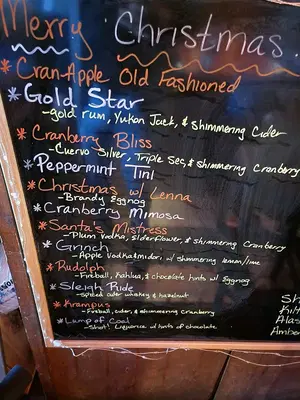 Merry Christmas.
*Cran-Apple Old Fashioned
*Gold Star
-gold rum, Yukon Jack, & shimmering Cider
*Cranberry Bliss
-Cuervo Silver, Triple Sec, & shimmering Cranberry
*Peppermint Tini
*Christmas w/ Lenna
-Brandy Eggnog
*Cranberry Mimosa
*Santa's Mistress
-Plum Vodka, elderflower, & shimmering Cranberry
*Grinch
-Apple Vodka, midori w/ shimmering lemon/lime
*Rudolph
-Fireball, Kahlua, & chocolate hints w/ Eggnog
*Sleigh Ride
-spiced cider whiskey & hazelnut
*Krampus
-Fireball, cider, & shimmering cranberry
*Lump of Coal
-Shot! Liquorice w/ hints of chocolate